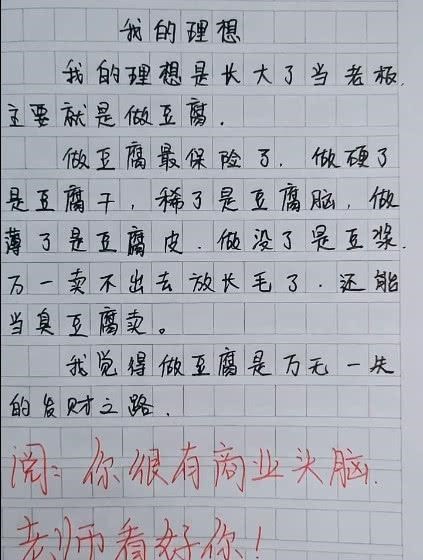 我的理想
我的理想是长大了当老板.
主要就是做豆腐.
做豆腐最保险了.做硬了
是豆腐干,稀了是豆腐脑,做
薄了是豆腐皮.做没了是豆浆.
万一卖不出去放长毛了.还能
当臭豆腐卖。
我觉得做豆腐是万无一失
的发财之路.
阅:你很有商业头脑.
老师看好你!